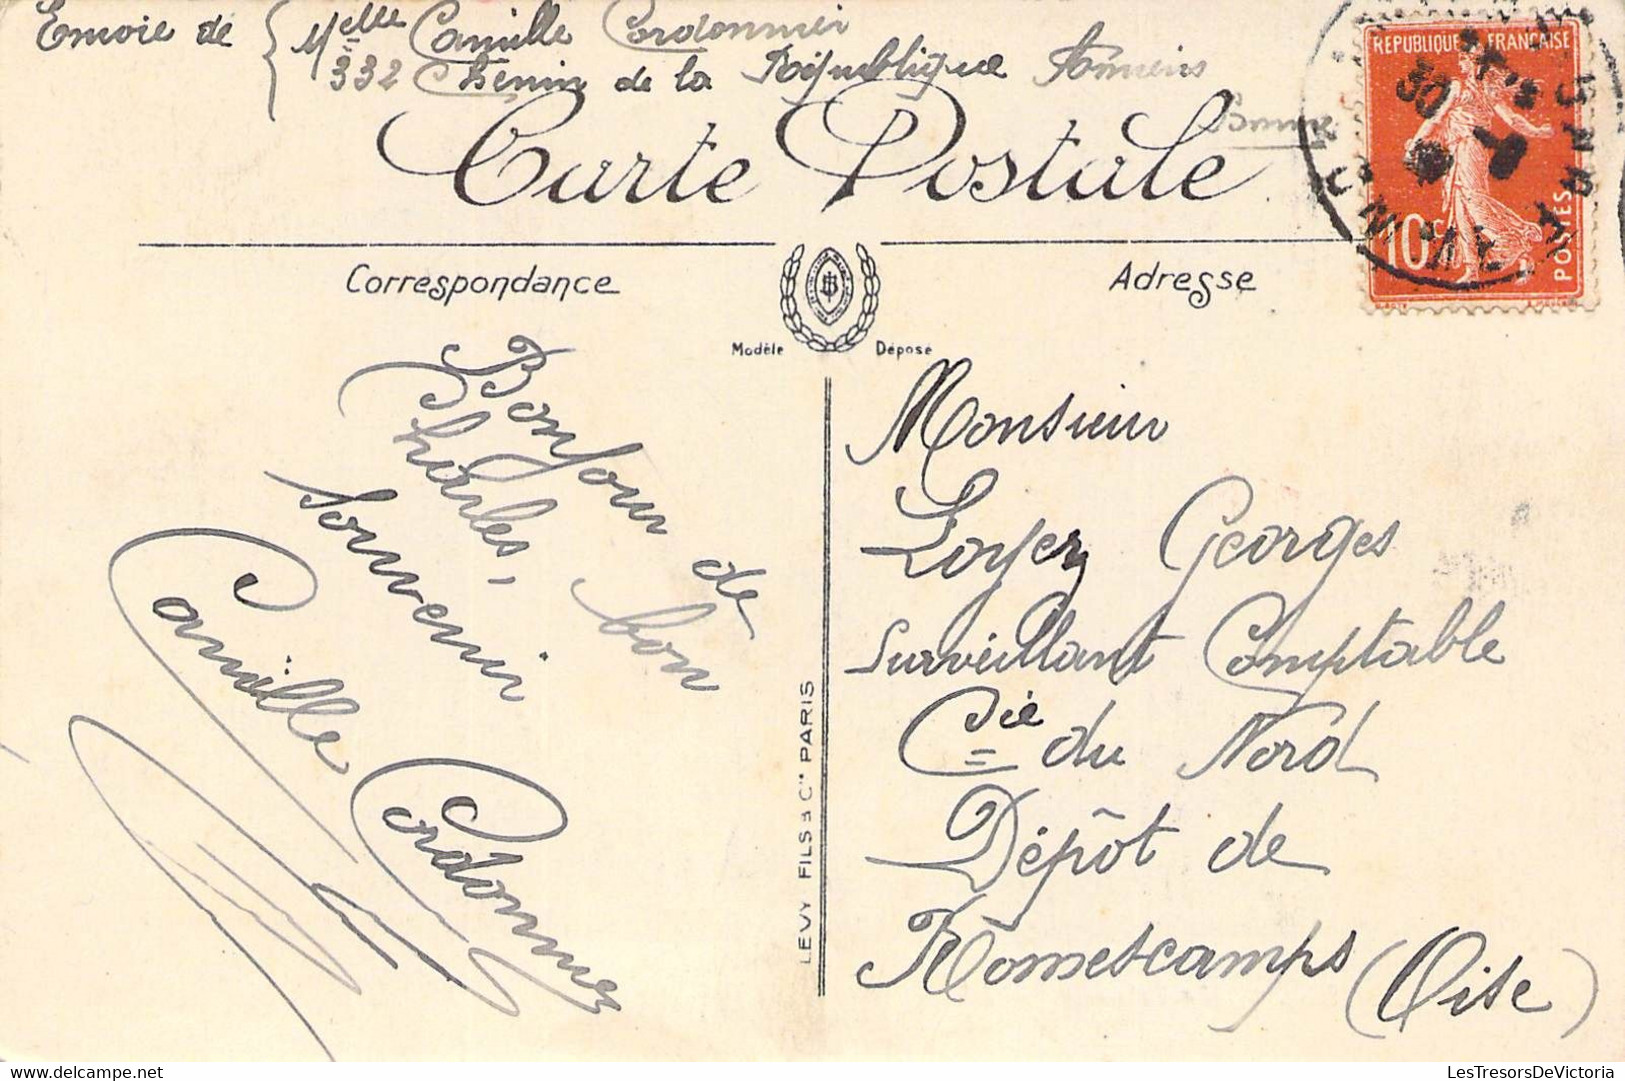 Envoie de { Melle Camille Cordonnier
332 Chemin de la République Amiens
Somme
Carte Postale
REPUBLIQUE FRANÇAISE
10c
POSTES
Correspondance
Adresse
Modèle Déposé
Bonjour de
Charles, bon
souvenir
Camille Cordonnier
LEVY FILS & Cie PARIS
Monsieur
Loyez Georges
Surveillant Comptable
Cie du Nord
Dépôt de
Romescamps (Oise)
LesTresorsDeVictoria
https://www.delcampe.net